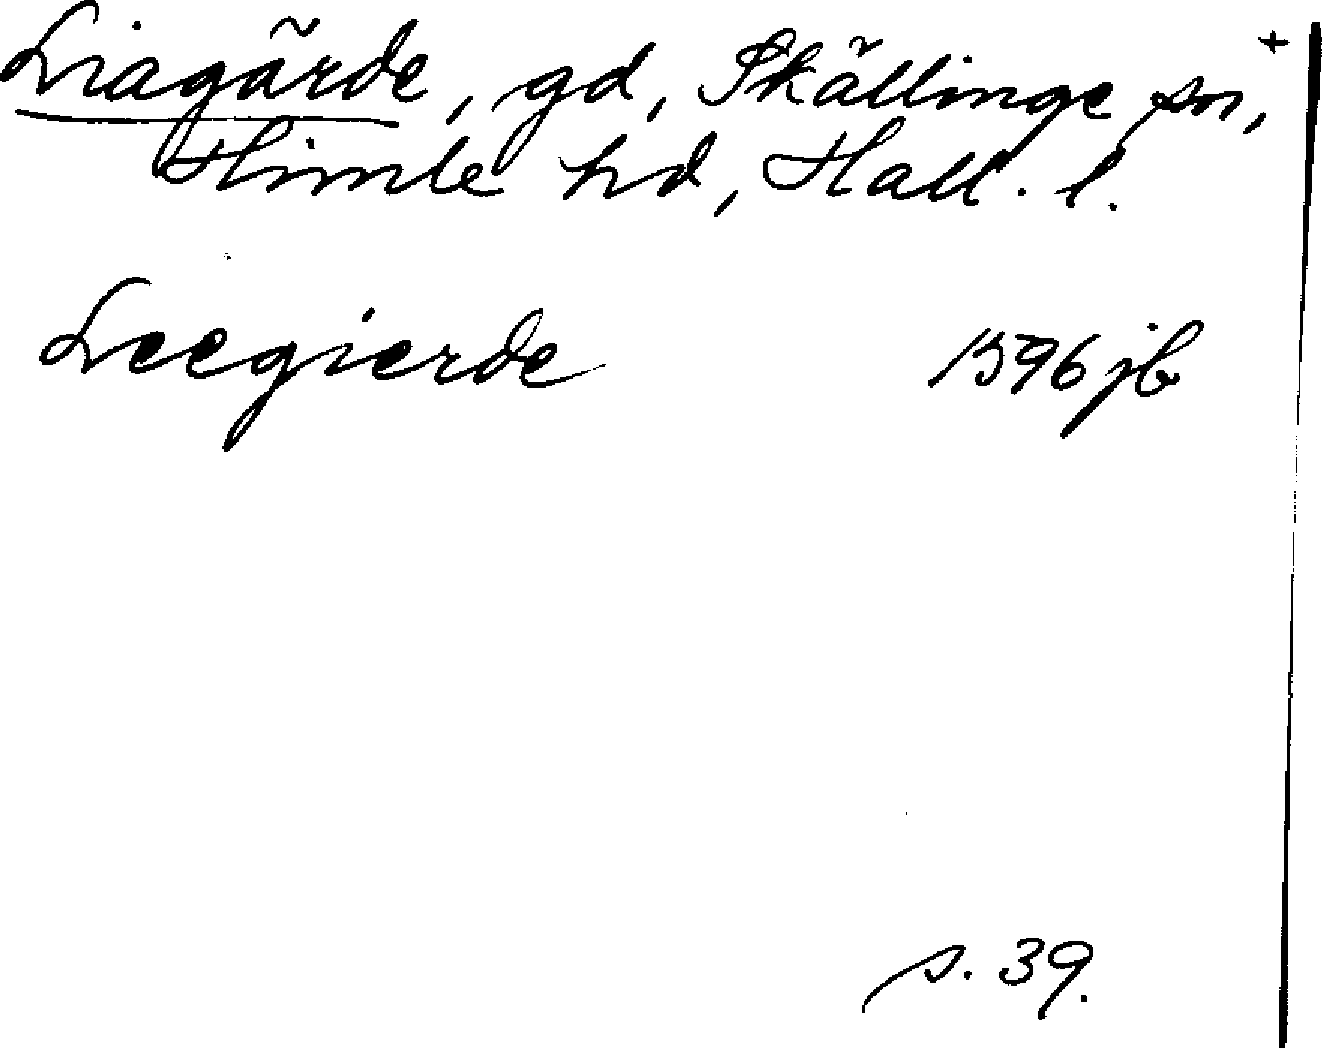 Liagärde, gd, Skällinge sn, +
Himle hd, Hall. l.
Leegierde 1596 jb
s. 39.